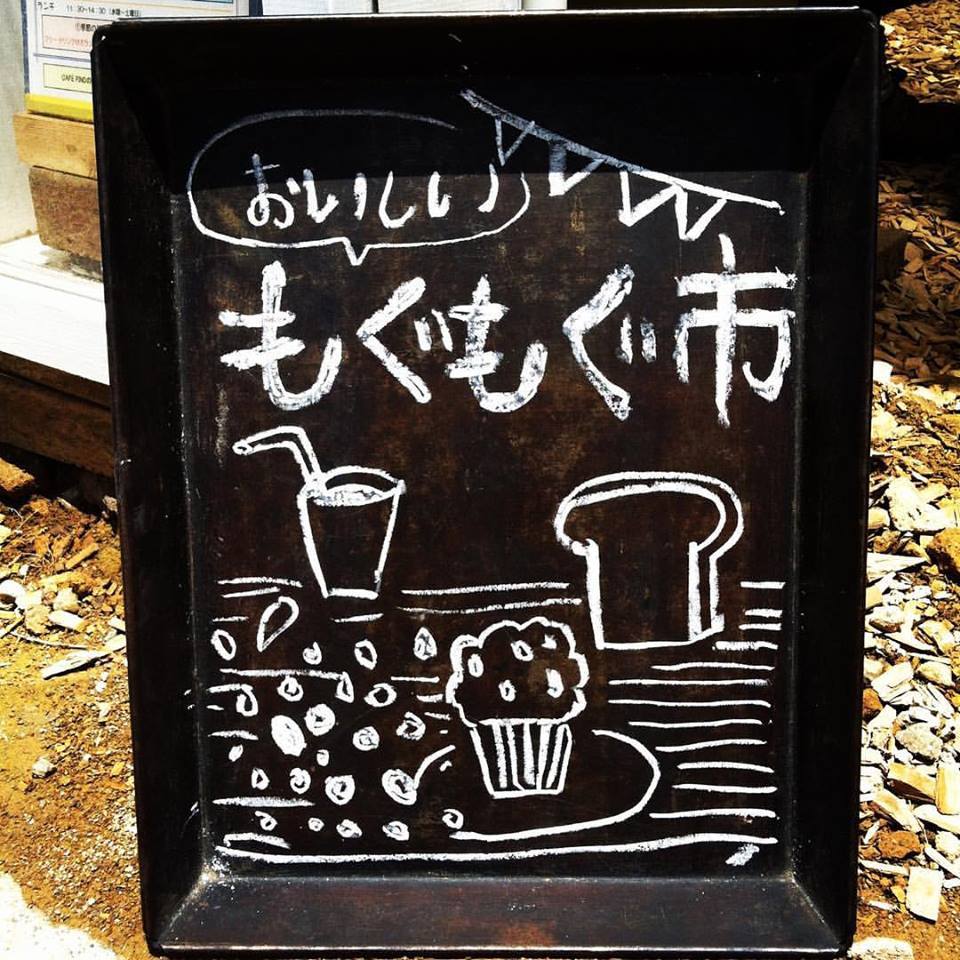 ランチ 11:30~14:30(水曜~土曜日)
おいしい
もぐもぐ市